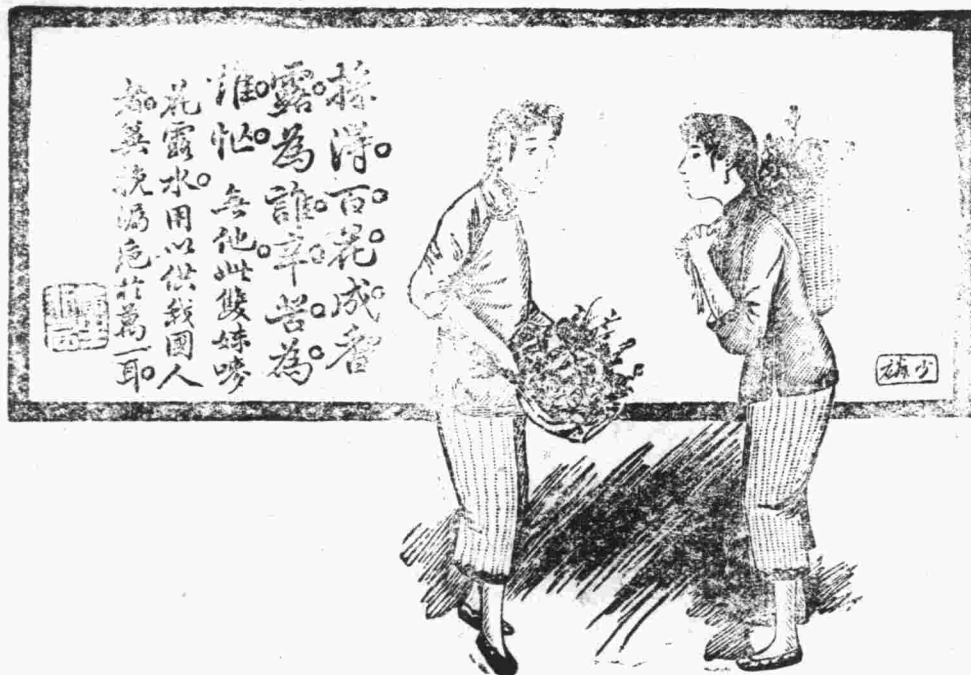 採得。百。花。成。香
露。為誰。辛。苦。為。
誰。忙。無他。此雙妹嘜
花露水。用以供我國人
者。冀挽漏卮於萬一耳。